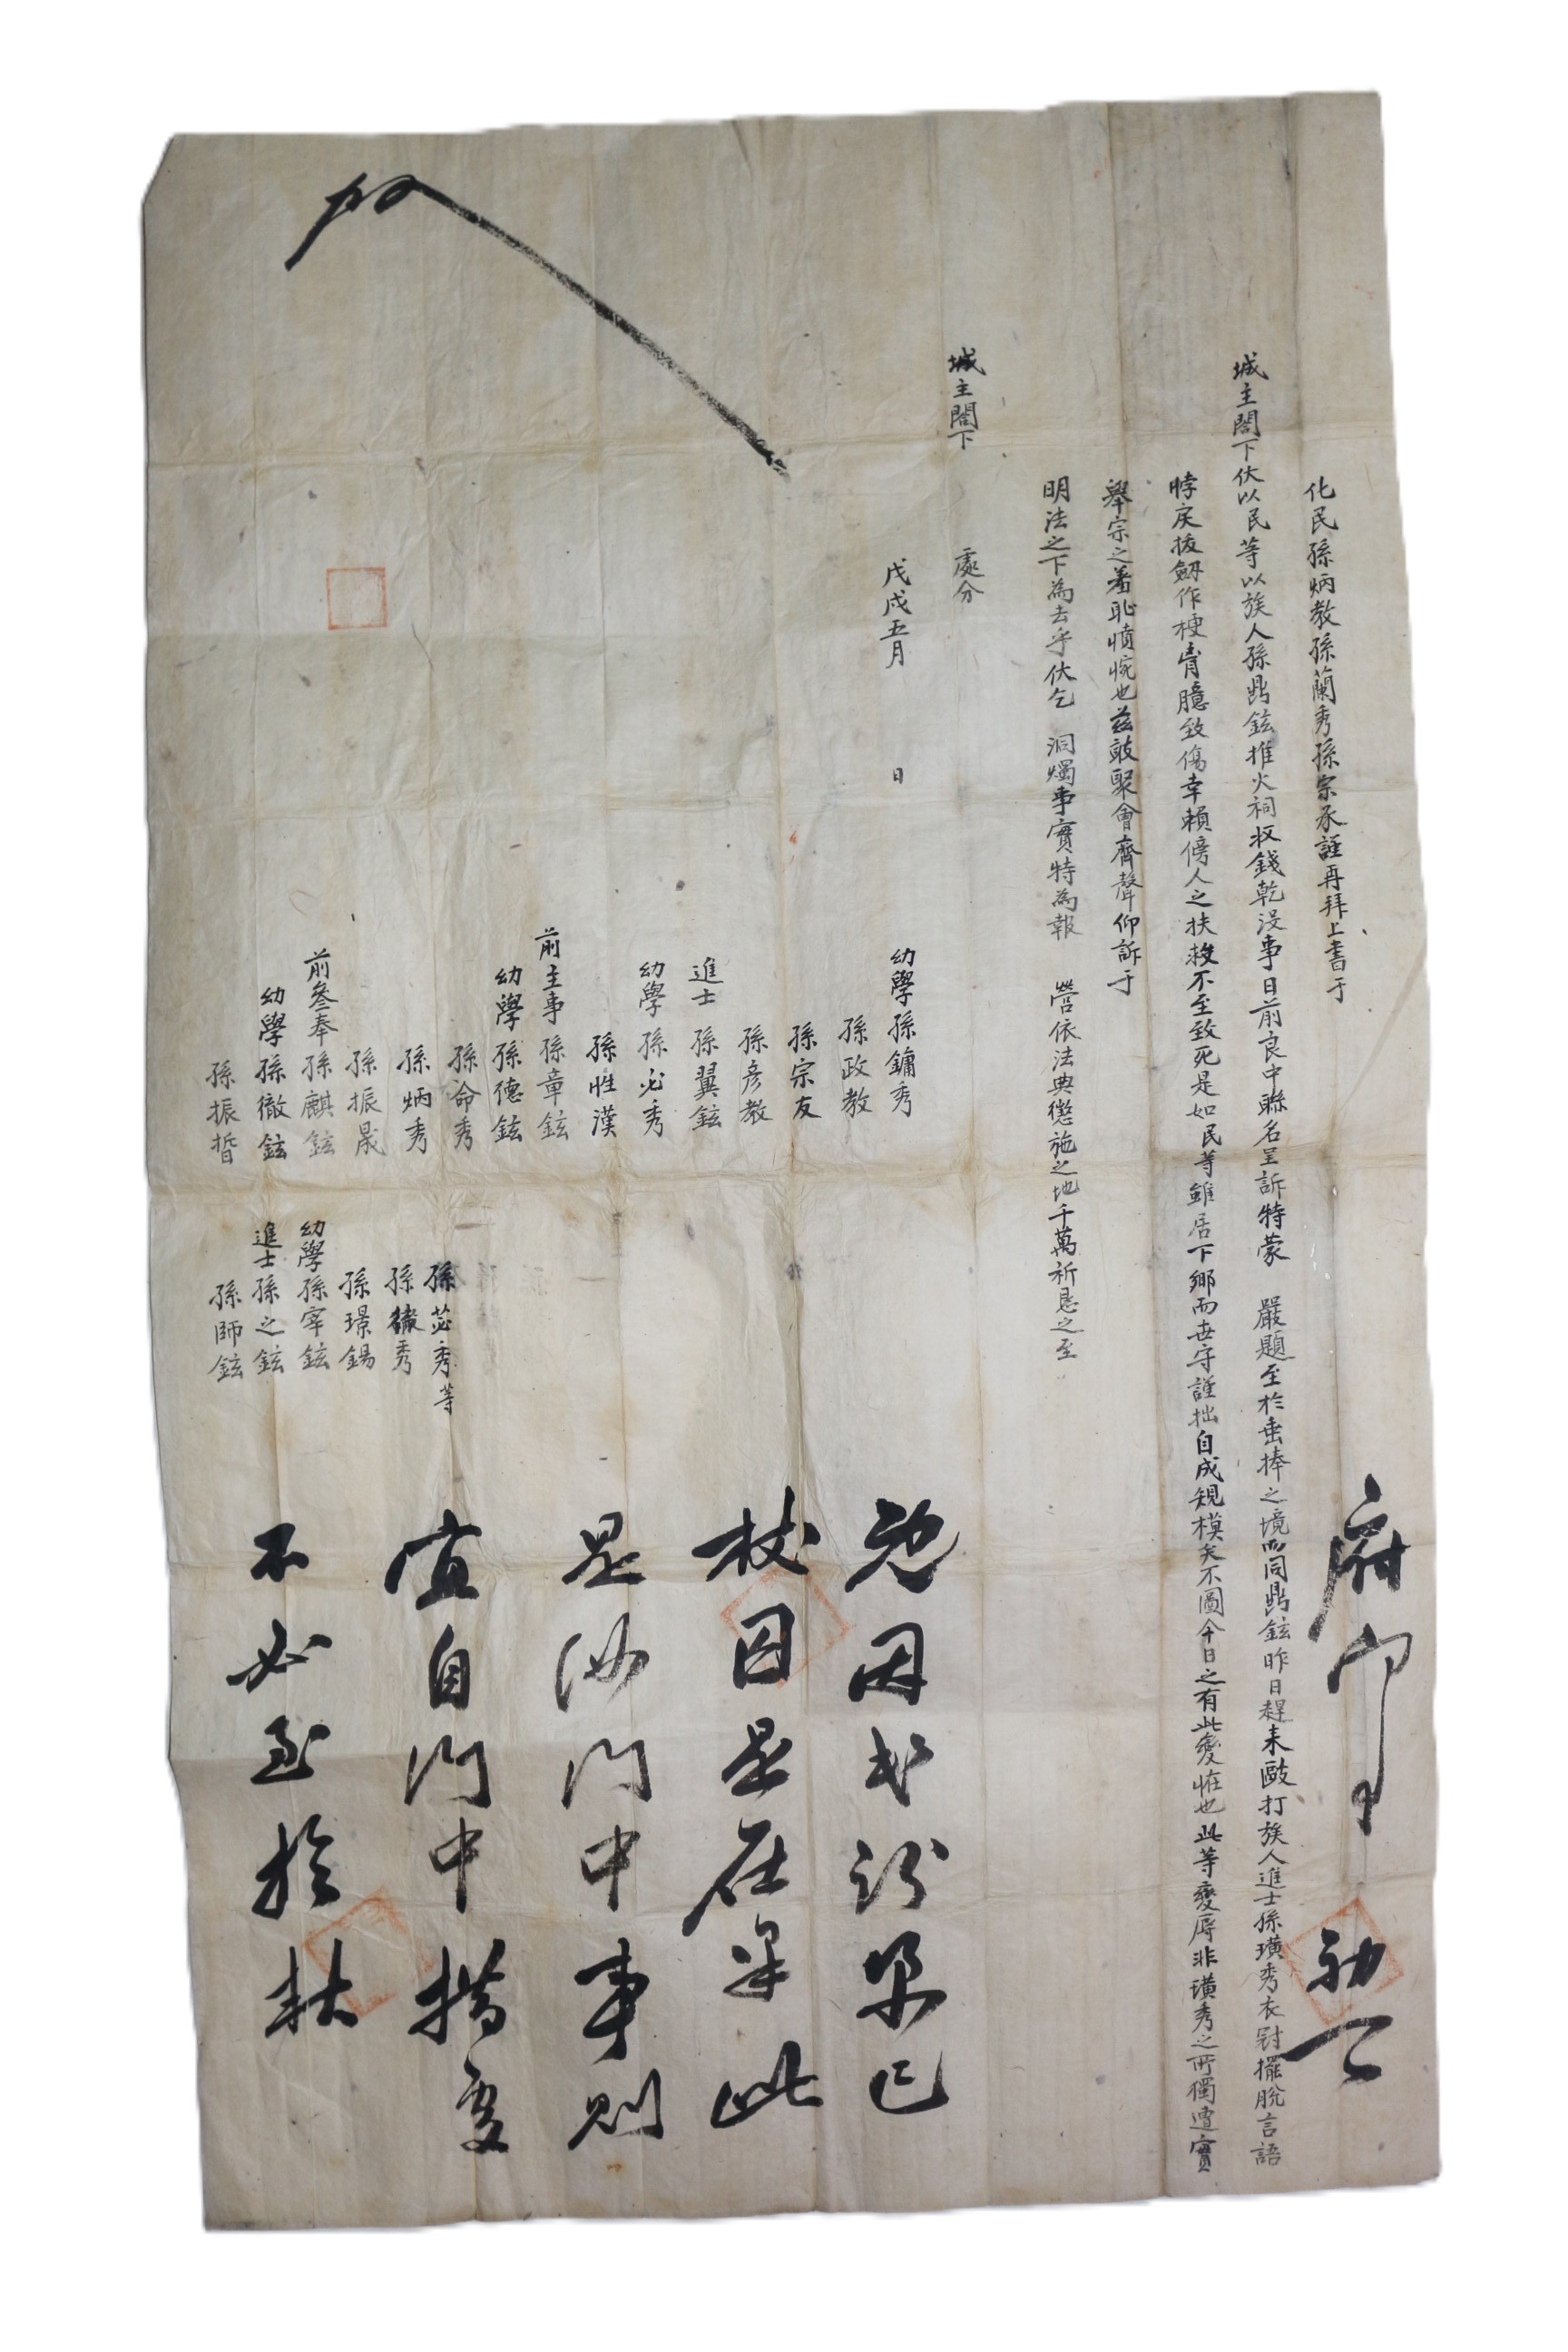 化民孫炳教孫蘭秀孫宗承謹再拜上書于
城主閤下伏以民等以族人孫鼎鉉推火祠收錢乾沒事日前良中聯名呈訴特蒙 嚴題至於垂捧之境而同鼎鉉昨日趕來毆打族人進士孫璜秀衣冠擺脫言語
悖戾拔劒作梗膏臆致傷幸賴傍人之扶救不至致死是如民等雖居下鄉而世守謹拙自成規模矣不圖今日之有此變怪也此等變辱非璜秀之所獨遭實
擧宗之羞恥憤惋也玆敢聚會齊聲仰訴于
明法之下爲去乎伏乞 洞燭事實特爲報 營依法典懲施之地千萬祈恳之至
處分
城主閤下
戊戌五月 日
幼學 孫鏞秀
孫政教
孫宗友
孫彦教
進士 孫翼鉉
幼學 孫必秀
孫性漢
前主事 孫章鉉
幼學 孫德鉉
孫命秀
孫炳秀
孫振晟
前參奉 孫麒鉉
幼學 孫徹鉉
孫振晢
孫苾秀 等
孫秀
孫璟錫
幼學 孫宰鉉
進士 孫之鉉
孫師鉉
杖囚是在果此
是門中事則
宜自門中措處
不必至於